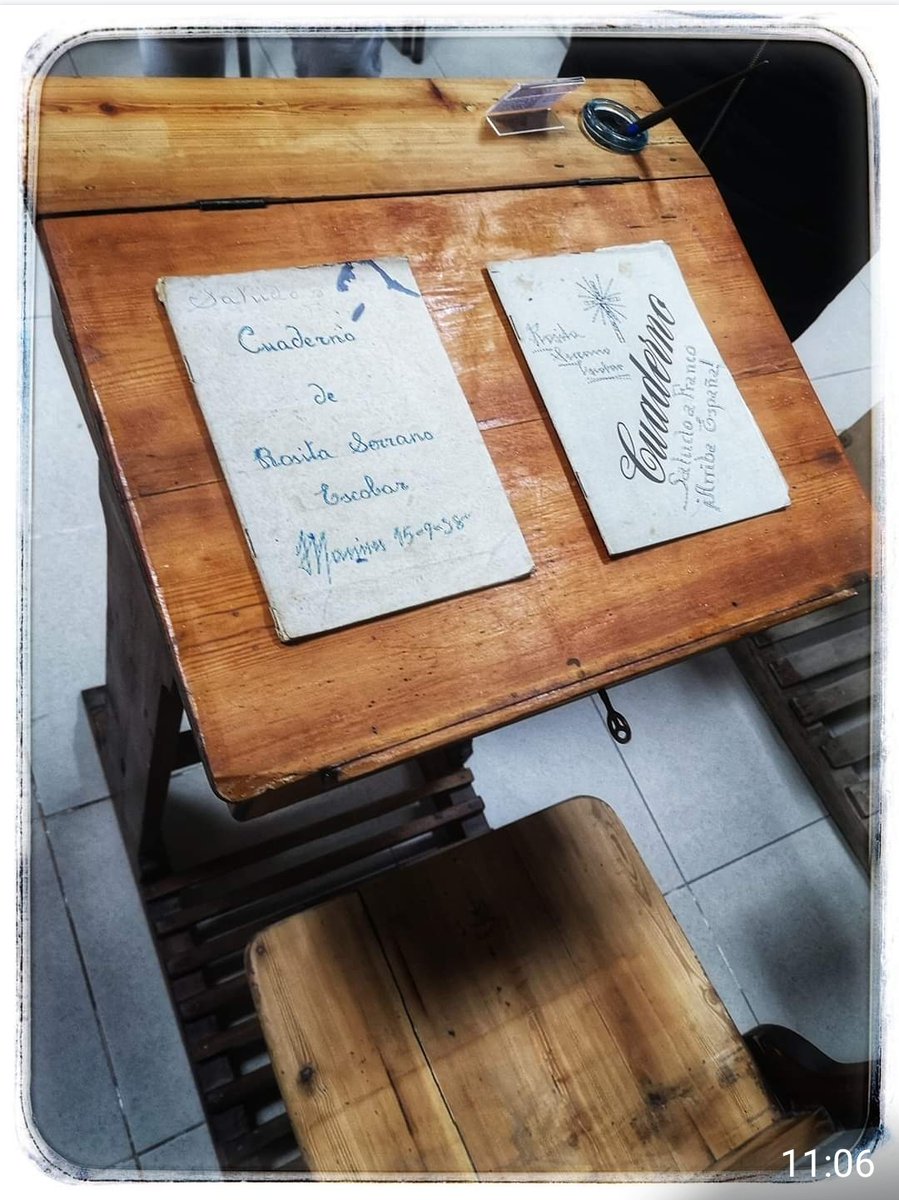 Saludo
Cuaderno
de
Rosita Serrano
Escobar
Manises 15-9-38
Rosita
Serrano
Escobar
Cuaderno
Saludo a Franco
¡Arriba España!
11:06